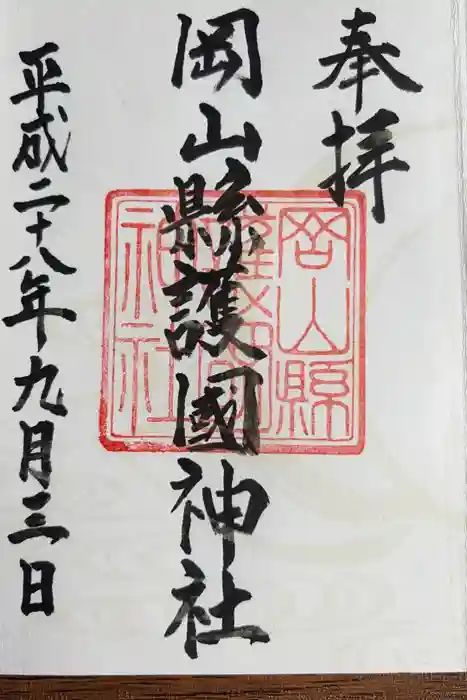 奉拝
岡山縣護國神社
岡山縣
護國
神社
平成二十八年九月三日